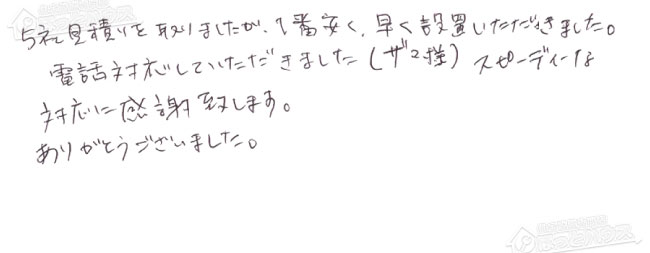 5社見積りを取りましたが、1番安く、早く設置いただきました。
電話対応していただきました（様）スピーディーな
対応に感謝致します。
ありがとうございました。